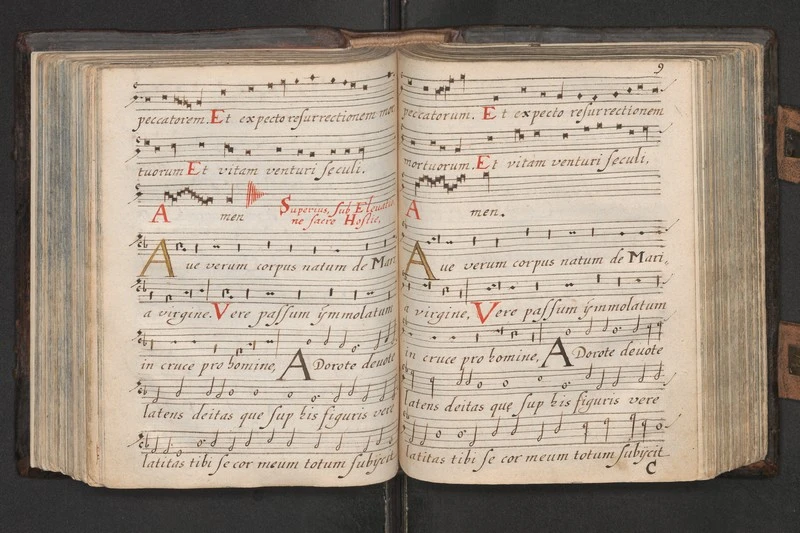 peccatorem. Et expecto resurrectionem mor,
tuorum Et vitam venturi seculi.
A men
Superius, sub Eleuatio
ne sacre Hostie,
Aue verum corpus natum de Mari
a virgine. Vere passum ÿmmolatum
in cruce pro homine, Adorote deuote
latens deitas que sup his figuris vere
latitas tibi se cor meum totum subÿcit
9
peccatorum. Et expecto resurrectionem
mortuorum. Et vitam venturi seculi.
A men.
Aue verum corpus natum de Mari,
a virgine, Vere passum ÿmmolatum
in cruce pro homine, Adorote deuote
latens deitas quę sup his figuris vere
latitas tibi se cor meum totum subÿcit
C